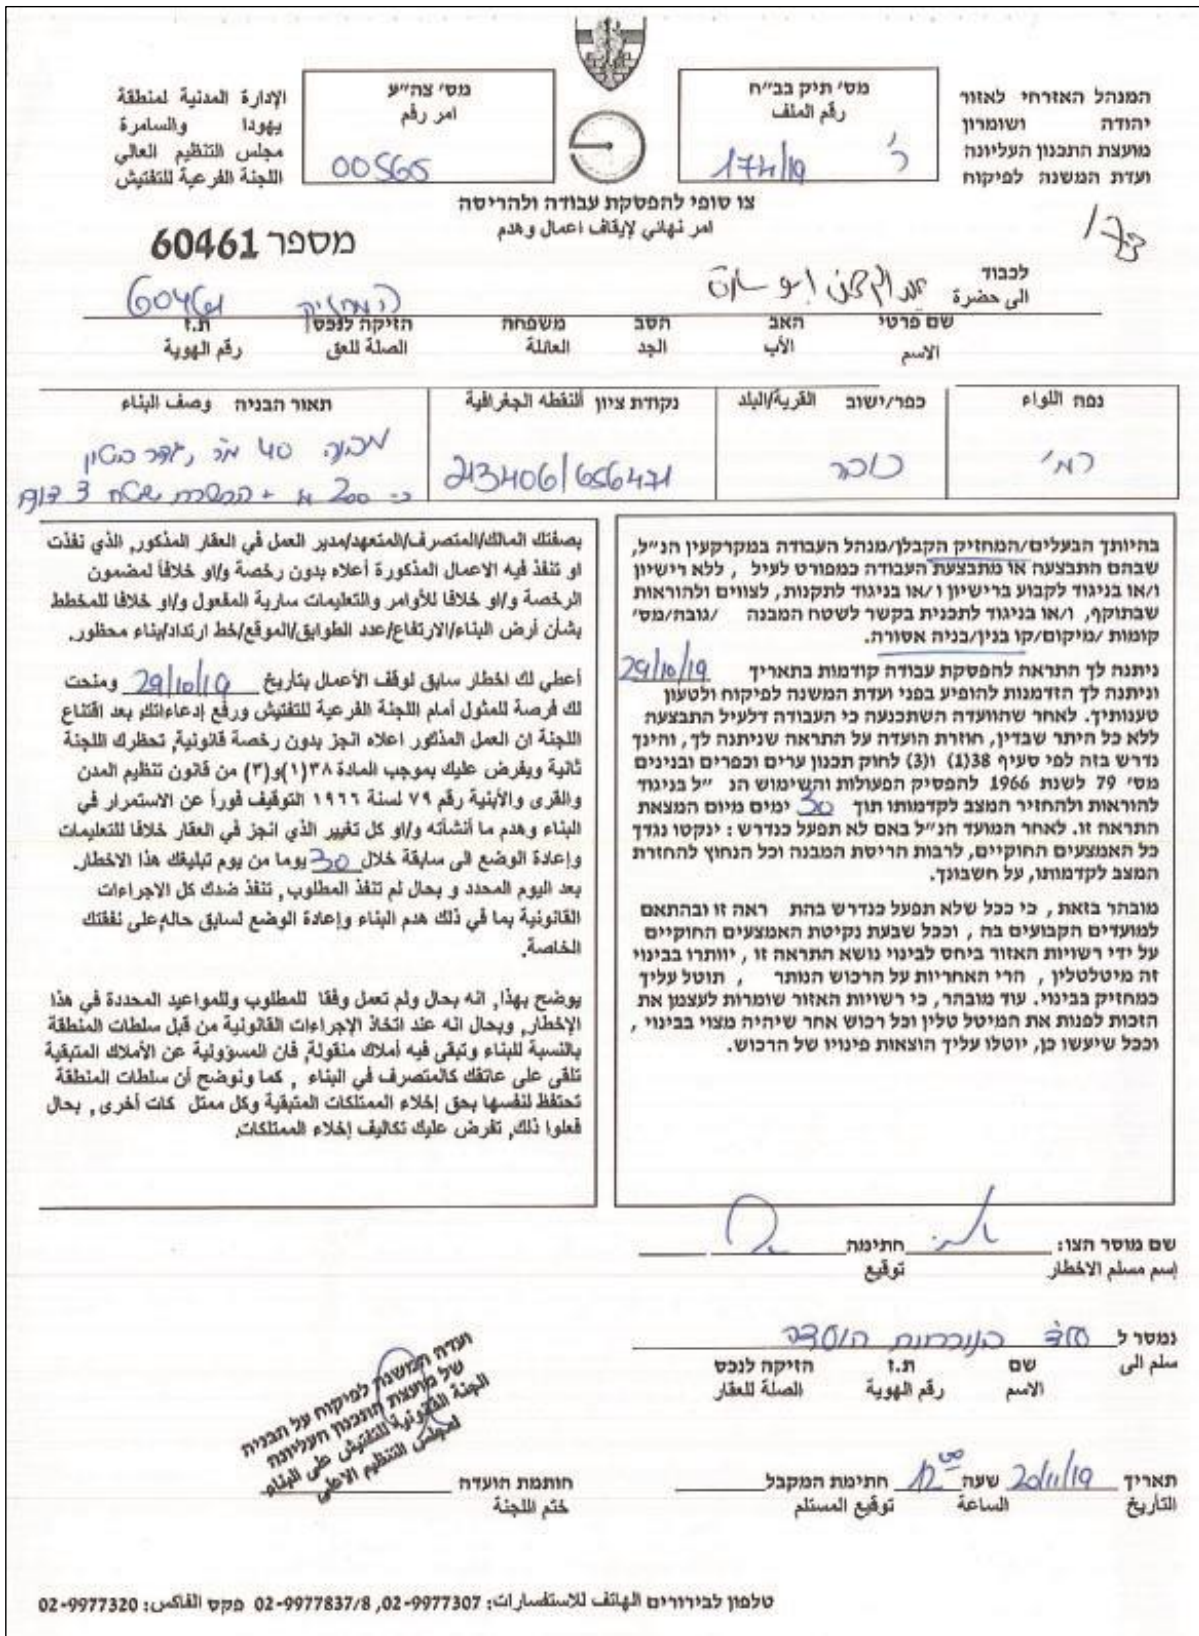 המנהל האזרחי לאזור
יהודה ושומרון
מועצת התכנון העליונה
ועדת המשנה לפיקוח
מס' תיק בב"ח
رقم الملف
174/19
מס' צה"ע
امر رقم
00565
الإدارة المدنية لمنطقة
يهودا والسامرة
مجلس التنظيم العالي
اللجنة الفرعية للتفتيش
צו סופי להפסקת עבודה ולהריסה
امر نهائي لإيقاف اعمال وهدم
מספר 60461
לכבוד
الى حضرة
המחזיק 60461
שם פרטי האב הסב משפחה הזיקה לנכס ת.ז
الاسم الأب الجد العائلة الصلة للعق رقم الهوية
נפה اللواء
כפר/ישוב القرية/البلد
נקודת ציון ألنقطه الجغرافية
תאור הבניה وصف البناء
רמ'
213406/656471
מבנה 40 מ"ר, גדר בטון
כ-200 מ' + הכשרת שטח 3 דונם
בהיותך הבעלים/המחזיק הקבלן/מנהל העבודה במקרקעין הנ"ל,
שבהם התבצעה או מתבצעת העבודה כמפורט לעיל , ללא רישיון
ו/או בניגוד לקבוע ברישיון ו/או בניגוד לתקנות, לצווים ולהוראות
שבתוקף, ו/או בניגוד לתכנית בקשר לשטח המבנה /גובה/מס'
קומות /מיקום/קו בנין/בניה אסורה.
ניתנה לך התראה להפסקת עבודה קודמות בתאריך 29/10/19
וניתנה לך הזדמנות להופיע בפני ועדת המשנה לפיקוח ולטעון
טענותיך. לאחר שהוועדה השתכנעה כי העבודה דלעיל התבצעה
ללא כל היתר שבדין, חוזרת הועדה על התראה שניתנה לך, והינך
נדרש בזה לפי סעיף 38(1) ו(3) לחוק תכנון ערים וכפרים ובנינים
מס' 79 לשנת 1966 להפסיק הפעולות והשימוש הנ "ל בניגוד
להוראות ולהחזיר המצב לקדמותו תוך 30 ימים מיום המצאת
התראה זו. לאחר המועד הנ"ל באם לא תפעל כנדרש : ינקטו נגדך
כל האמצעים החוקיים, לרבות הריסת המבנה וכל הנחוץ להחזרת
המצב לקדמותו, על חשבונך.
מובהר בזאת , כי ככל שלא תפעל כנדרש בהת ראה זו ובהתאם
למועדים הקבועים בה , וככל שבעת נקיטת האמצעים החוקיים
על ידי רשויות האזור ביחס לבינוי נושא התראה זו , יוותרו בבינוי
זה מיטלטלין , הרי האחריות על הרכוש הנותר , תוטל עליך
כמחזיק בבינוי. עוד מובהר, כי רשויות האזור שומרות לעצמן את
הזכות לפנות את המיטל טלין וכל רכוש אחר שיהיה מצוי בבינוי ,
וככל שיעשו כן, יוטלו עליך הוצאות פינויו של הרכוש.
بصفتك المالك/المتصرف/المتعهد/مدير العمل في العقار المذكور, الذي نفذت
او تنفذ فيه الاعمال المذكورة أعلاه بدون رخصة و/او خلافاً لمضمون
الرخصة و/او خلافا للأوامر والتعليمات سارية المفعول و/او خلافا للمخطط
بشأن أرض البناء/الارتفاع/عدد الطوابق/الموقع/خط ارتداد/بناء محظور.
أعطي لك اخطار سابق لوقف الأعمال بتاريخ 29/10/19 ومنحت
لك فرصة للمثول أمام اللجنة الفرعية للتفتيش ورفع إدعاءاتك, بعد اقتناع
اللجنة ان العمل المذكور اعلاه انجز بدون رخصة قانونية, تحظرك اللجنة
ثانية ويفرض عليك بموجب المادة ٣٨(١)و(٣) من قانون تنظيم المدن
والقرى والأبنية رقم ٧٩ لسنة ١٩٦٦ التوقيف فوراً عن الاستمرار في
البناء وهدم ما أنشأته و/او كل تغيير الذي انجز في العقار خلافا للتعليمات
وإعادة الوضع الى سابقة خلال 30 يوما من يوم تبليغك هذا الاخطار.
بعد اليوم المحدد و بحال لم تنفذ المطلوب , تنفذ ضدك كل الاجراءات
القانونية بما في ذلك هدم البناء وإعادة الوضع لسابق حاله,على نفقتك
الخاصة.
يوضح بهذا, انه بحال ولم تعمل وفقا للمطلوب وللمواعيد المحددة في هذا
الإخطار, وبحال انه عند اتخاذ الإجراءات القانونية من قبل سلطات المنطقة
بالنسبة للبناء وتبقى فيه أملاك منقولة, فان المسؤولية عن الأملاك المتبقية
تلقى على عاتقك كالمتصرف في البناء , كما ونوضح أن سلطات المنطقة
تحتفظ لنفسها بحق إخلاء الممتلكات المتبقية وكل ممتل كات أخرى , بحال
فعلوا ذلك, تفرض عليك تكاليف إخلاء الممتلكات.
שם מוסר הצו: חתימה
إسم مسلم الاخطار توقيع
נמסר ל
سلم الى
שם ת.ז הזיקה לנכס
الاسم رقم الهوية الصلة للعقار
ועדת המשנה לפיקוח על הבניה
של מועצת התכנון העליונה
اللجنة القانونية للتفتيش على البناء
لمجلس التنظيم الاعلى
תאריך 20/11/19 שעה 12:00 חתימת המקבל
التأريخ الساعة توقيع المستلم
חותמת הועדה
ختم اللجنة
טלפון לבירורים الهاتف للاستفسارات: 02-9977307, 02-9977837/8 פקס الفاكس: 02-9977320